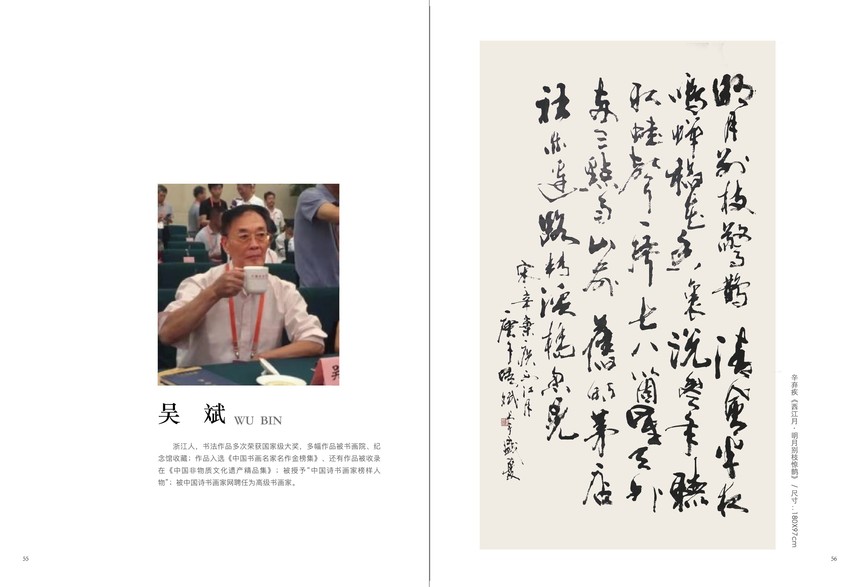 吴 斌 WU BIN
浙江人，书法作品多次荣获国家级大奖，多幅作品被书画院、纪
念馆收藏；作品入选《中国书画名家名作金榜集》、还有作品被收录
在《中国非物质文化遗产精品集》；被授予“中国诗书画家榜样人
物”；被中国诗书画家网聘任为高级书画家。
55
明月别枝惊鹊 清风半夜
鸣蝉稻花香里 说丰年听
取蛙声一片 七八个星天外
两三点雨山前 旧时茅店
社林边 路转溪桥忽见
宋辛弃疾西江月
辛弃疾《西江月·明月别枝惊鹊》 / 尺寸：180X97cm
56